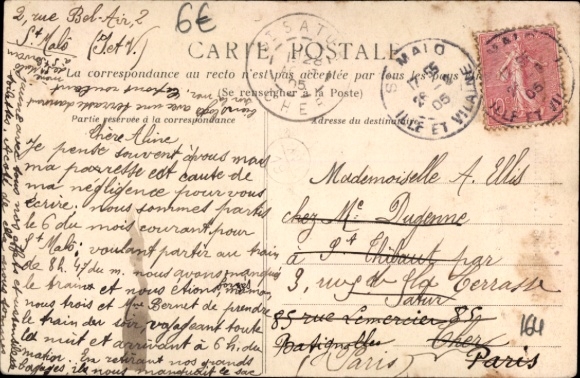 2, rue Bel-Air, 2
St Malô (I. et V.)
6€
CARTE POSTALE
La correspondance au recto n'est pas acceptée par tous les pays
(Se renseigner à la Poste)
Partie réservée à la correspondance
Adresse du destinataire
ST SATUR
CHER
ST MALO
ILLE ET VILAINE
05
Chère Aline
Je pense souvent à vous mais
ma paresse est cause de
ma négligence pour vous
écrire. nous sommes partis
le 6 du mois courant pour
St Malô; voulant partir au train
de 8h. 47 du m. nous avons manqué
le train et nous étions
nous trois et Mme Bernet de prendre
le train du soir, voyageant toute
la nuit et arrivant à 6 h. du
matin. En retirant nos grands
bagages, ils nous manquait le sac
Mademoiselle A. Ulis
chez Me Dugenne
à St Thibaut par
3, rue de la Terrasse
Satur
85 rue Lemercier 85
Batignolles Cher
(Paris) Paris
164